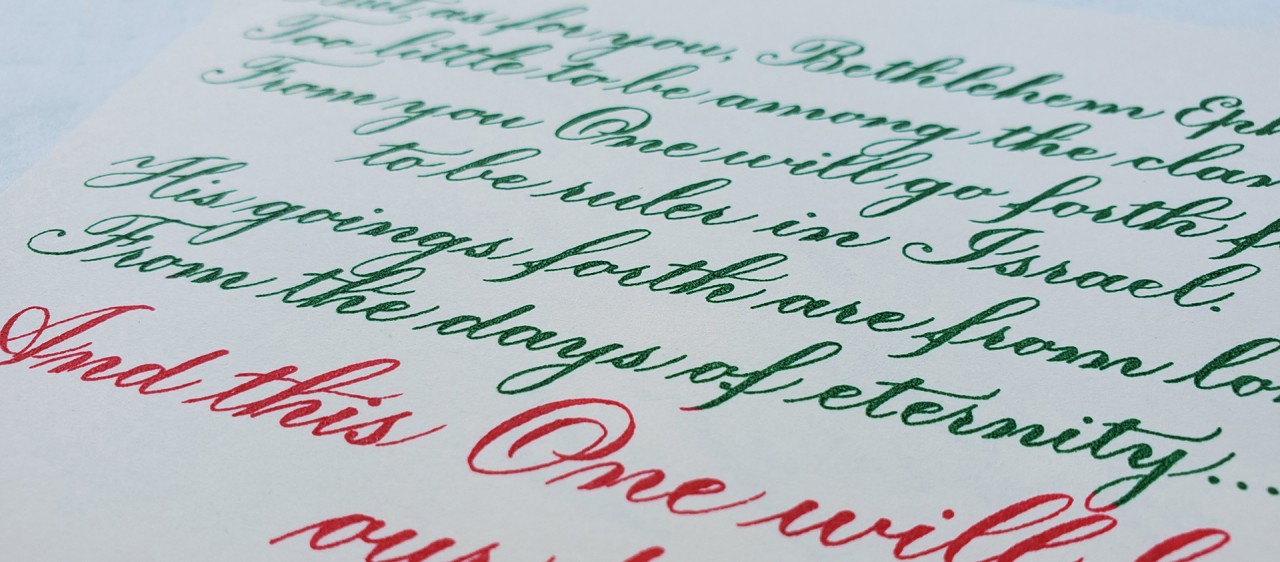 But as for you, Bethlehem
Too little to be among the
From you One will go forth
to be ruler in Israel.
His goings forth are from
From the days of eternity...
And this One will
our